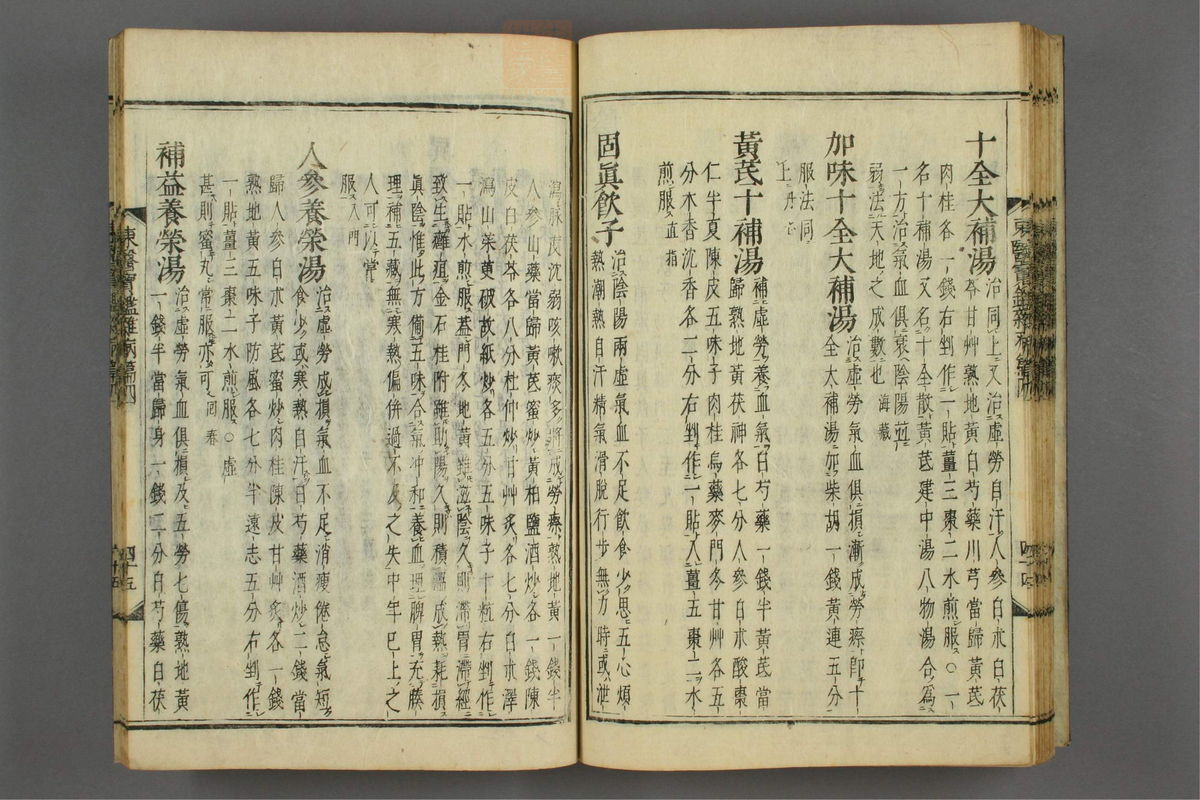 十全大補湯 治同上又治虛勞自汗人參白朮白茯
苓甘艸熟地黃白芍藥川芎當歸黃芪
肉桂各一錢右剉作一貼薑三棗二水煎服○一
名十補湯又名十全散黃芪建中湯八物湯合爲
一方治氣血俱衰陰陽並
弱法天地之成數也 海藏
加味十全大補湯 治虛勞氣血俱損漸成勞瘵卽十
全大補湯加柴胡一錢黃連五分
服法同
上 丹心
黃芪十補湯 補虛勞養血氣白芍藥一錢半黃芪當
歸熟地黃茯神各七分人參白朮酸棗
仁半夏陳皮五味子肉桂烏藥麥門冬甘艸各五
分木香沈香各二分右剉作一貼入薑五棗二水
煎服 直指
固眞飮子 治陰陽兩虛氣血不足飮食少思五心煩
熱潮熱自汗精氣滑脫行步無力時或泄
瀉脉度沈弱咳嗽痰多將成勞瘵熟地黃一錢半
人參山藥當歸黃芪蜜炒黃柏鹽酒炒各一錢陳
皮白茯苓各八分杜仲炒甘艸炙各七分白朮澤
瀉山茱萸破故紙炒各五分五味子十粒右剉作
一貼水煎服蓋門冬地黃雖滋陰久則滯胃滯經
致生癰疽金石桂附雖助陽久則積溫成熱耗損
眞陰惟此方備五味合氣冲和養血理脾胃充腠
理補五藏無寒熱偏併過不及之失中年已上之
人可以常
服 入門
人參養榮湯 治虛勞成損氣血不足消瘦倦怠氣短
食少或寒熱自汗白芍藥酒炒二錢當
歸人參白朮黃芪蜜炒肉桂陳皮甘艸炙各一錢
熟地黃五味子防風各七分半遠志五分右剉作
一貼薑三棗二水煎服○虛
甚則蜜丸常服亦可 回春
補益養榮湯 治虛勞氣血俱損及五勞七傷熟地黃
一錢半當歸身一錢二分白芍藥白茯
東醫寶鑑雜病篇四
四十五